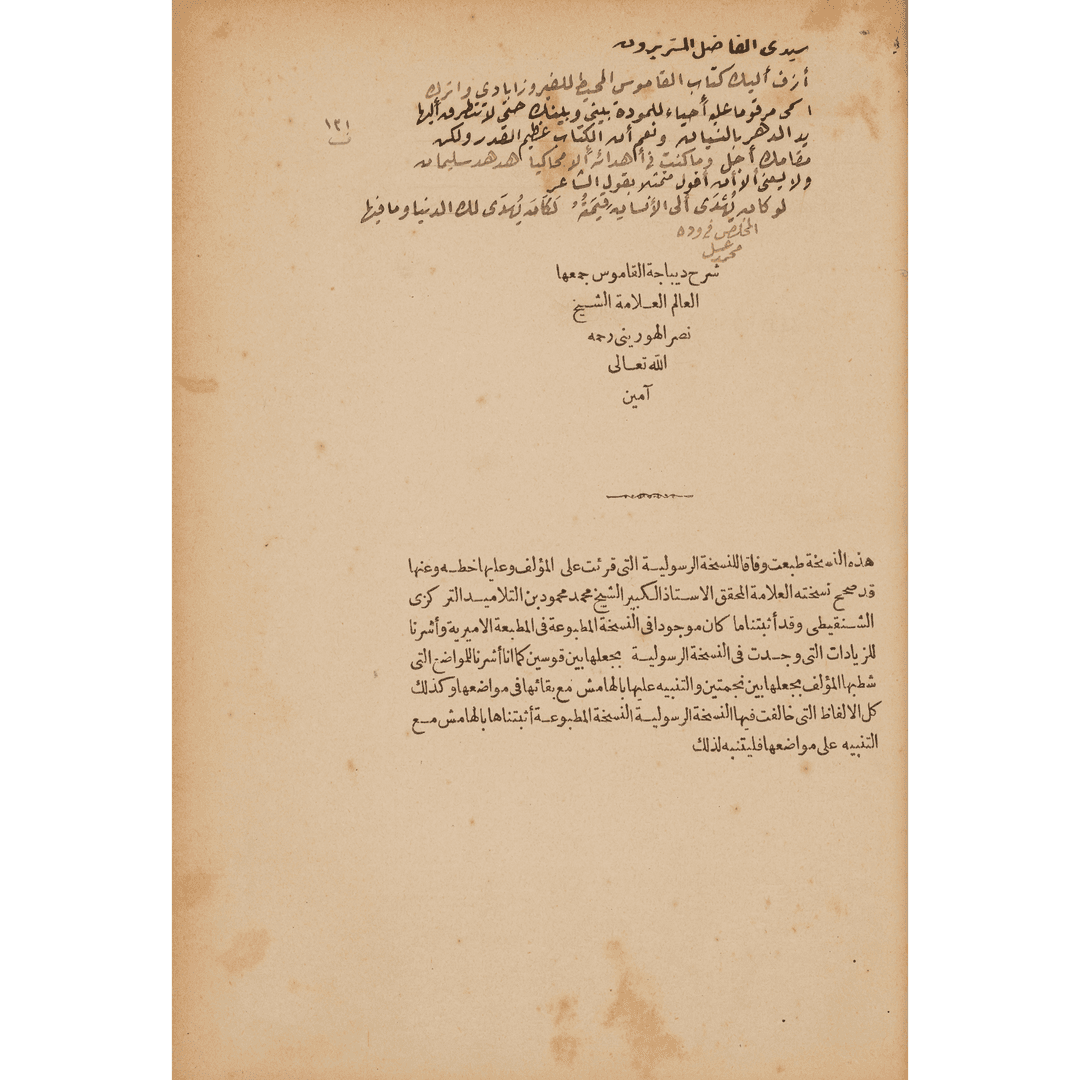 سيدى الفاضل المستر برون
أزف أليك كتاب القاموس المحيط للفيروزابادي واترك
اسمى مرقوما عليه أحياء للمودة بينى وبينك حتى لا تتطرق أليها
يد الدهر بالنسيان ونعم أن الكتاب عظيم القدر ولكن
مقامك أجل وما كنت فى أهدائه ألا محاكيا هدهد سليمان
ولا يسعنى ألا أن أقول متمثلا بقول الشاعر
لو كان يُهْدَى ألى الأنسان قيمَتُهُ لَكَانَ يُهدَى لك الدنيا وما فيها
المخلص فى وده
محمد عسل
١٢١
شرح ديباجة القاموس جمعها
العالم العلامة الشيخ
نصر الهورينى رحمه
الله تعالى
آمين
هذه النسخة طبعت وفاقا للنسخة الرسولية التى قرئت على المؤلف وعليها خطه وعنها
قد صحح نسخته العلامة المحقق الاستاذ الكبير الشيخ محمد محمود بن التلاميد التركزى
الشنقيطى وقد أثبتنا ما كان موجودا فى النسخة المطبوعة فى المطبعة الاميرية وأشرنا
للزيادات التى وجدت فى النسخة الرسولية بجعلها بين قوسين كما انا أشرنا للمواضع التى
شطبها المؤلف بجعلها بين نجمتين والتنبيه عليها بالهامش مع بقائها فى مواضعها وكذلك
كل الالفاظ التى خالفت فيها النسخة الرسولية النسخة المطبوعة أثبتناها بالهامش مع
التنبيه على مواضعها فليتنبه لذلك